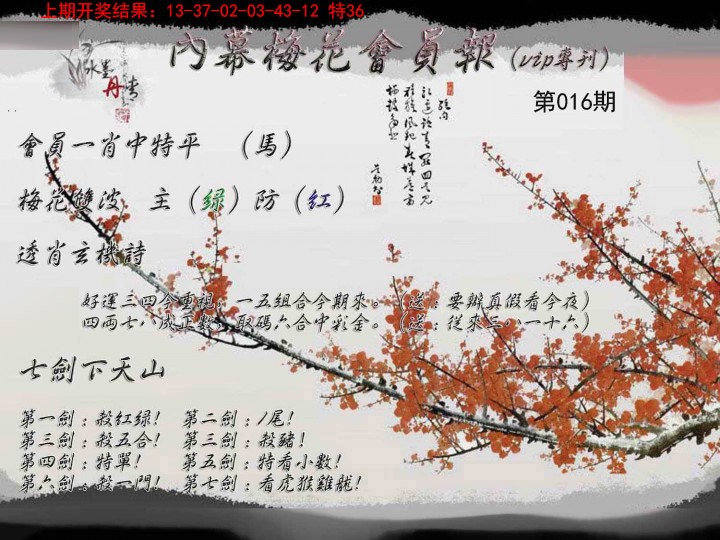 上期开奖结果：13-37-02-03-43-12 特36
內幕梅花會員報(vip專刊)
第016期
水墨
丹情
會員一肖中特平 （馬）
梅花雙波 主（绿）防（紅）
透肖玄機詩
好運三四今重視，一五組合今期來。（送：要辦真假看今夜）
四两七八成正數，取碼六合中彩金。（送：從來三八一十六）
七劍下天山
第一劍：殺红绿！ 第二劍：1尾！
第三劍：殺五合！ 第三劍：殺豬！
第四劍：特單！ 第五劍：特看小數！
第六劍：殺一門！ 第七劍：看虎猴雞龍！